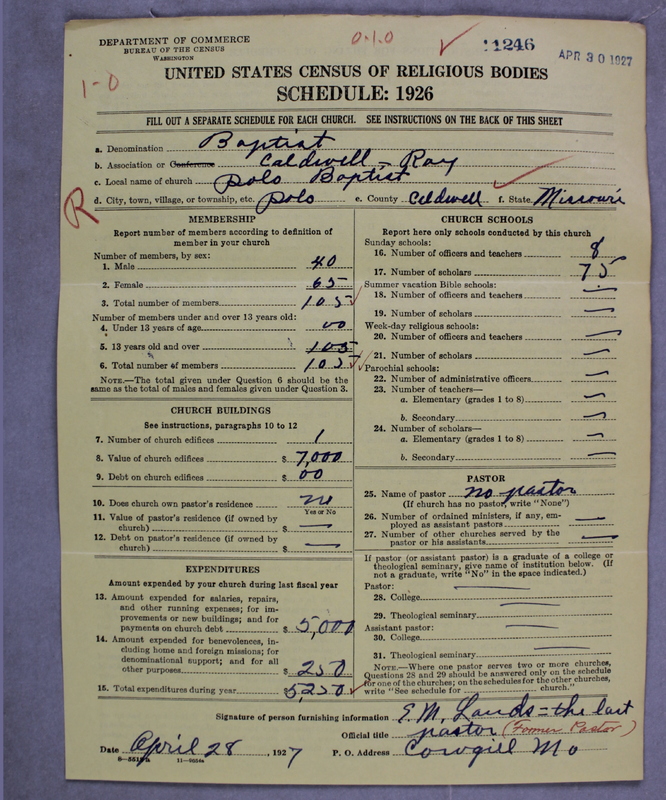 DEPARTMENT OF COMMERCE
BUREAU OF THE CENSUS
WASHINGTON
0.1.0
11246
APR 30 1927
1-0
UNITED STATES CENSUS OF RELIGIOUS BODIES
SCHEDULE: 1926
FILL OUT A SEPARATE SCHEDULE FOR EACH CHURCH. SEE INSTRUCTIONS ON THE BACK OF THIS SHEET
a. Denomination Baptist
b. Association or Conference Caldwell - Ray
c. Local name of church Polo Baptist
d. City, town, village, or township, etc. Polo e. County Caldwell f. State Missouri
R
MEMBERSHIP
Report number of members according to definition of
member in your church
Number of members, by sex:
1. Male 40
2. Female 65
3. Total number of members 105
Number of members under and over 13 years old:
4. Under 13 years of age 00
5. 13 years old and over 105
6. Total number of members 105
NOTE.—The total given under Question 6 should be the
same as the total of males and females given under Question 3.
CHURCH BUILDINGS
See instructions, paragraphs 10 to 12
7. Number of church edifices 1
8. Value of church edifices $ 7,000
9. Debt on church edifices $ 00
10. Does church own pastor's residence no
Yes or No
11. Value of pastor's residence (if owned by
church) $ —
12. Debt on pastor's residence (if owned by
church) $ —
EXPENDITURES
Amount expended by your church during last fiscal year
13. Amount expended for salaries, repairs,
and other running expenses; for im-
provements or new buildings; and for
payments on church debt $ 5,000
14. Amount expended for benevolences, in-
cluding home and foreign missions; for
denominational support; and for all
other purposes $ 250
15. Total expenditures during year $ 5250
CHURCH SCHOOLS
Report here only schools conducted by this church
Sunday schools:
16. Number of officers and teachers 8
17. Number of scholars 75
Summer vacation Bible schools:
18. Number of officers and teachers —
19. Number of scholars —
Week-day religious schools:
20. Number of officers and teachers —
21. Number of scholars —
Parochial schools:
22. Number of administrative officers —
23. Number of teachers—
a. Elementary (grades 1 to 8) —
b. Secondary —
24. Number of scholars—
a. Elementary (grades 1 to 8) —
b. Secondary —
PASTOR
25. Name of pastor no pastor
(If church has no pastor, write "None")
26. Number of ordained ministers, if any, em-
ployed as assistant pastors —
27. Number of other churches served by the
pastor or his assistants —
If pastor (or assistant pastor) is a graduate of a college or
theological seminary, give name of institution below. (If
not a graduate, write "No" in the space indicated.)
Pastor: —
28. College —
29. Theological seminary —
Assistant pastor: —
30. College —
31. Theological seminary —
NOTE.—Where one pastor serves two or more churches,
Questions 28 and 29 should be answered only on the schedule
for one of the churches; on the schedules for the other churches,
write "See schedule for church."
Signature of person furnishing information E. M. Lands = the last
Official title pastor (Former Pastor)
Date April 28, 1927 P. O. Address Cowgill Mo